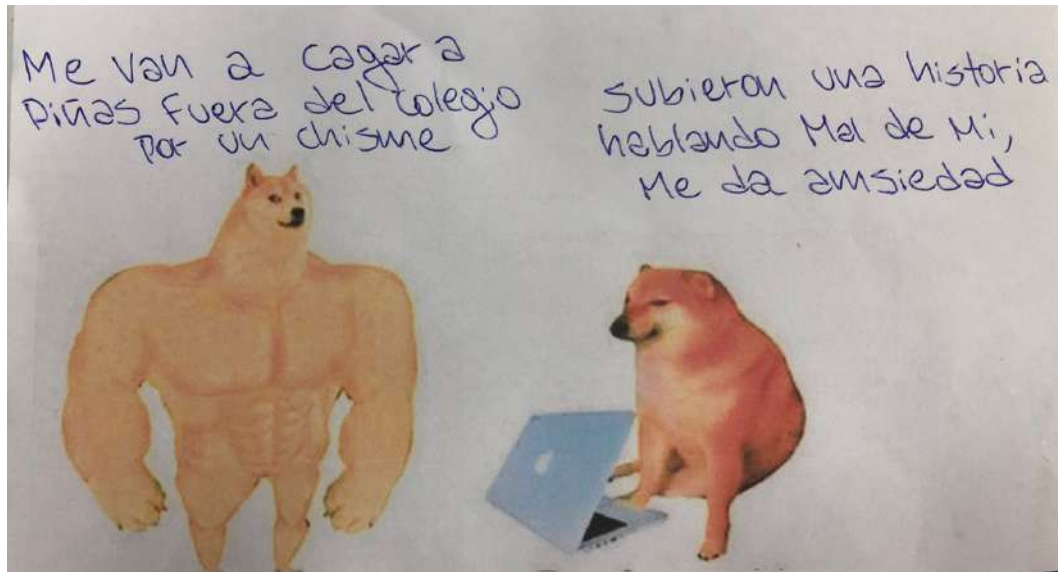 Me van a cagar a
piñas fuera del colegio
por un chisme
subieron una historia
hablando Mal de Mi,
Me da amsiedad